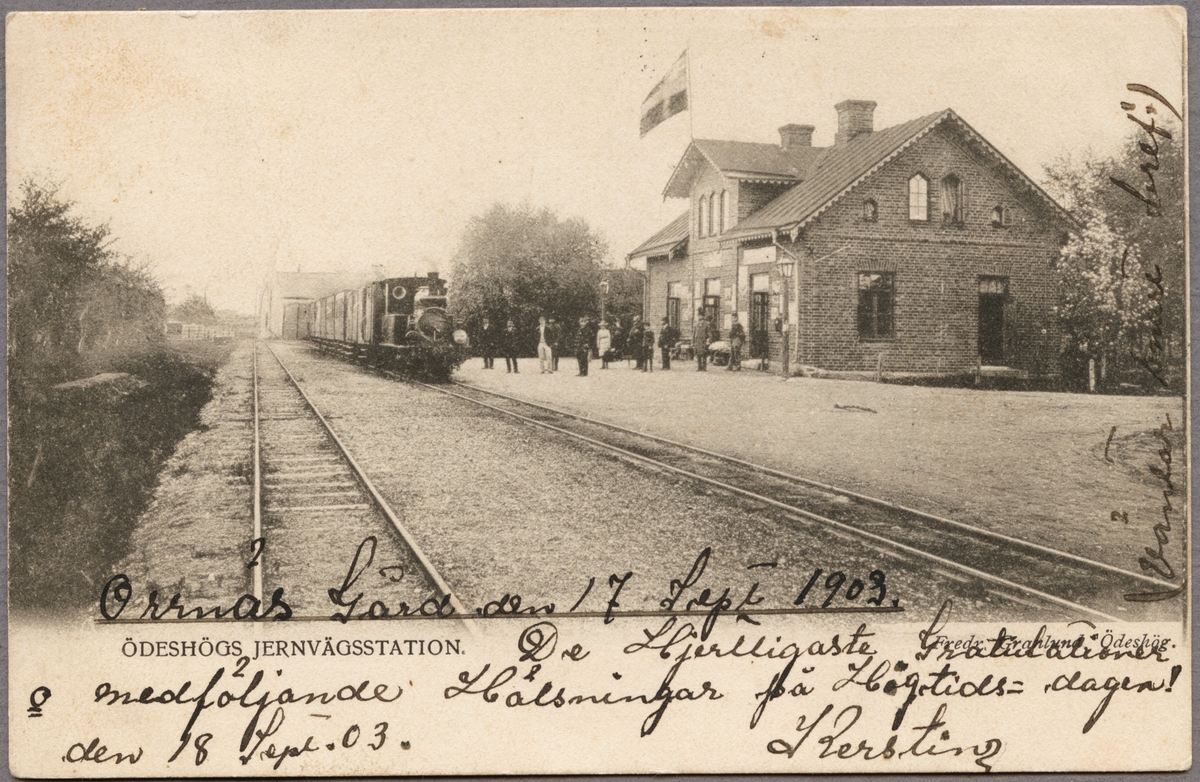 Orrnäs Gård den 17 Sept 1903.
ÖDESHÖGS JERNVÄGSSTATION.
Fredr. Granlund, Ödeshög.
De Hjertligaste Gratulationer
o medföljande Hälsningar på Högtids= dagen!
den 18 Sept. 03.
Kersting
(Väntar snart bref!)